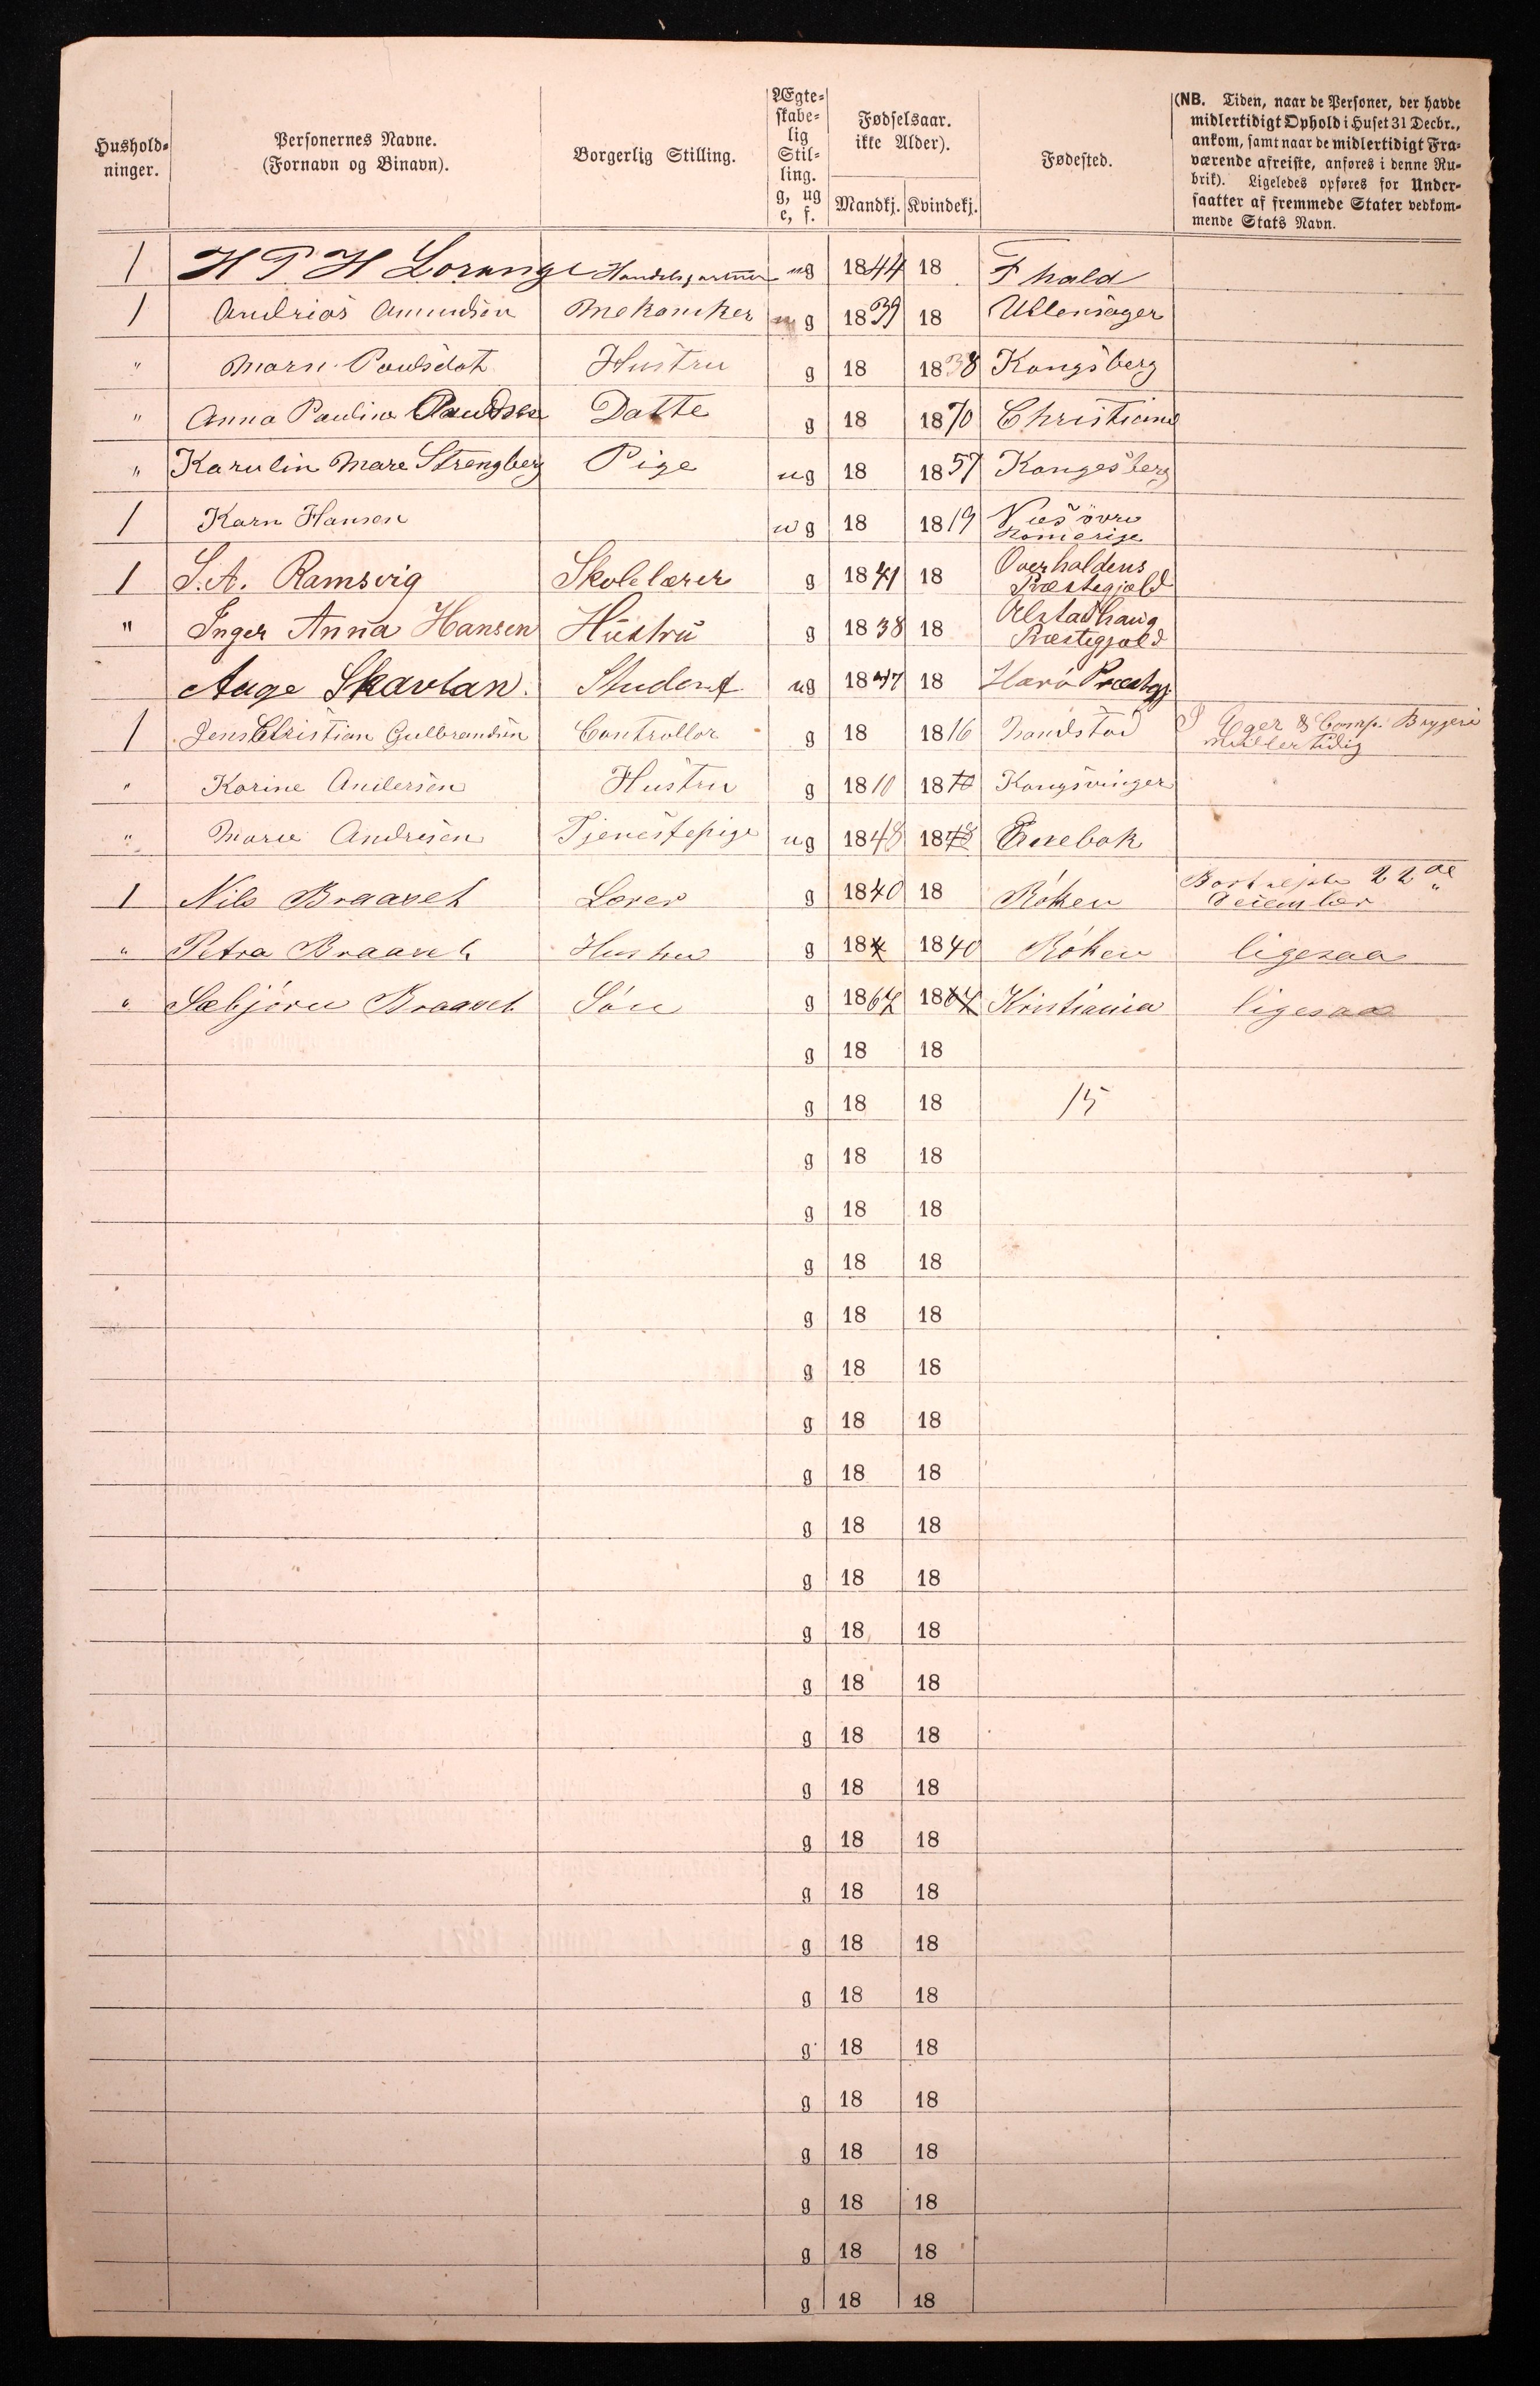 Hushold-
ninger.
Personernes Navne.
(Fornavn og Binavn).
Borgerlig Stilling.
Ægte-
skabe-
lig
Stil-
ling.
g, ug
e, f.
Fødselsaar.
ikke Alder).
Mandkj. Kvindekj.
Fødested.
(NB. Tiden, naar de Personer, der havde
midlertidigt Ophold i Huset 31 Decbr.,
ankom, samt naar de midlertidigt Fra-
værende afreiste, anføres i denne Ru-
brik). Ligeledes opføres for Under-
saatter af fremmede Stater vedkom-
mende Stats Navn.
1 H P H Lorange ug 1844 18 Fhald
1 Andreas Amundsen Mekaniker g 1839 18 Ullensager
" Marn Paulsdat Hustru g 18 1838 Kongsberg
" Anna Pauline Paulsen Datte g 18 1870 Christiania
" Karulin Mare Strengberg Pige ug 18 1857 Kongesberg
1 Karn Hansen ug 18 1819 Næs övre
Romerige
1 S. A. Ramsvig Skolelærer g 1841 18 Overhaldens
Præstegjeld
" Inger Anna Hansen Hustru g 1838 18 Alstadhaug
Præstegjeld
Aage Skavlan. Student ug 1847 18 Harö Præstgj.
1 Jens Christian Gulbrandsen Controllør g 18 1816 Nandstad Eger & Comp. Bryggeri
Midlertidig
" Karine Andersen Hustru g 1810 1810 Kongsvinger
" Marie Andresen Tjenestepige ug 1848 1848 Enebak
1 Nils Braavet Lærer g 1840 18 Röken Bortrejste 22de
December
" Petra Braavet Hustru g 184 1840 Röken ligesaa
" Sæbjörn Braavet Sön g 1867 1867 Kristiania ligesaa
g 18 18
g 18 18 15
g 18 18
g 18 18
g 18 18
g 18 18
g 18 18
g 18 18
g 18 18
g 18 18
g 18 18
g 18 18
g 18 18
g 18 18
g 18 18
g 18 18
g 18 18
g 18 18
g 18 18
g 18 18
g 18 18
g 18 18
g 18 18
g 18 18
g 18 18